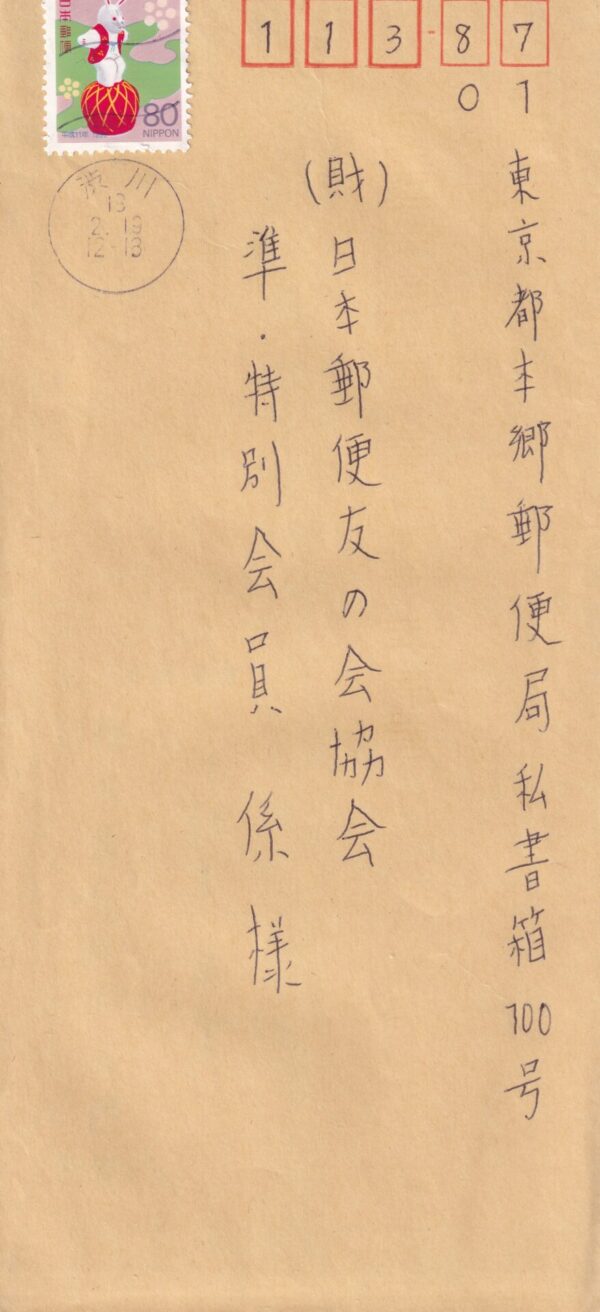 日本郵便
80
NIPPON
平成11年 1999
渋川
13
2.19
12-18
113-87
01
東京都本郷郵便局私書箱100号
(財)日本郵便友の会協会
準・特別会員係様